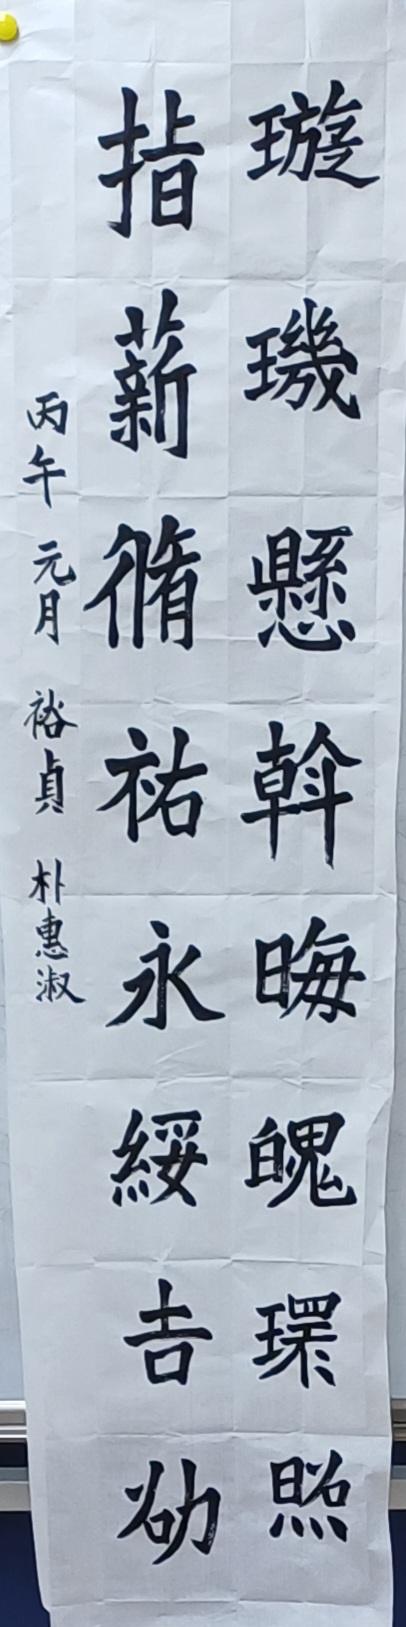 璇璣懸斡晦魄環照
指薪脩祐永綏吉劭
丙午 元月 裕貞 朴惠淑